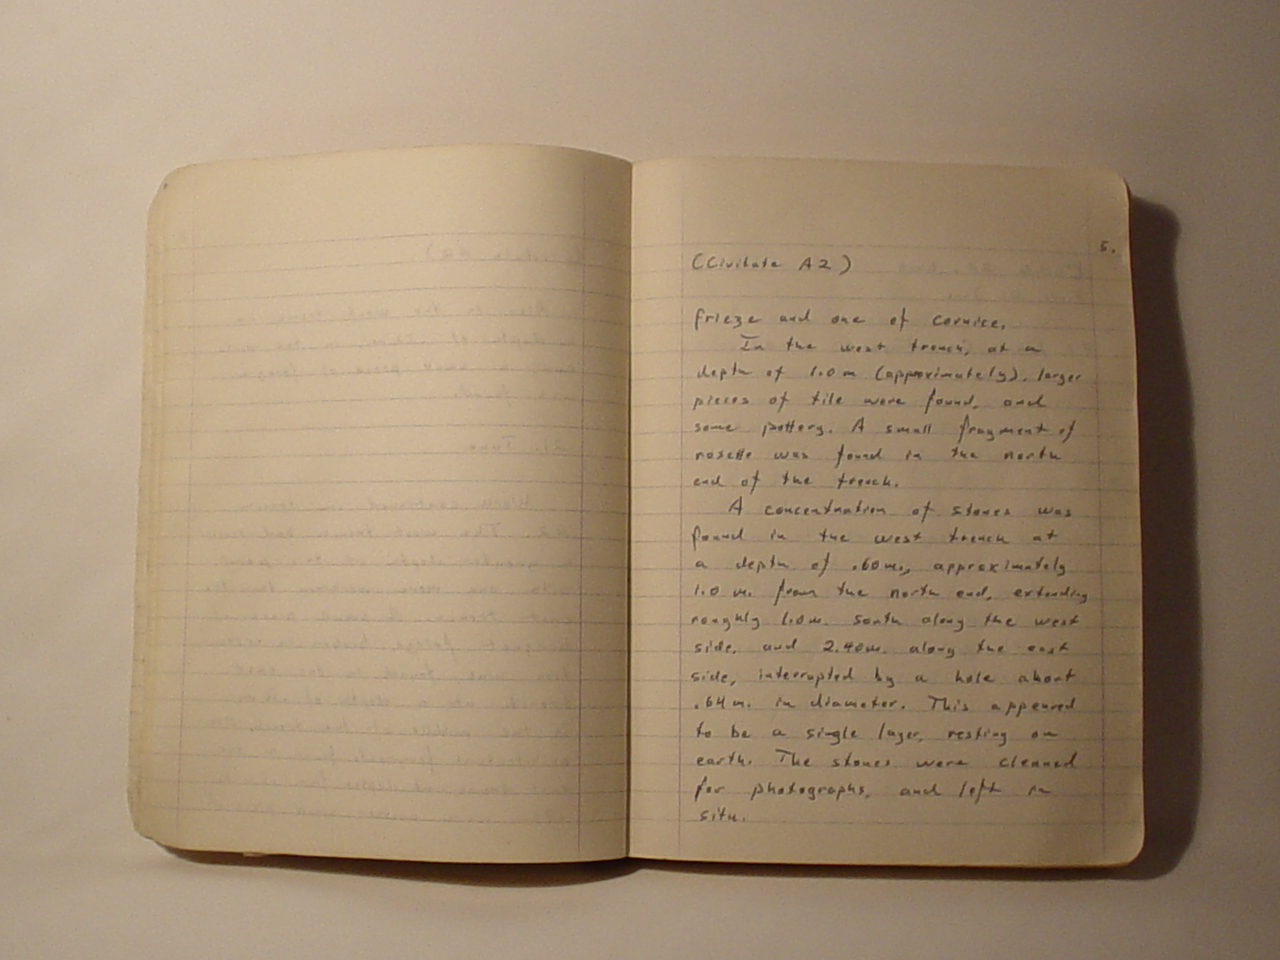 5.
(Civitate A2)
frieze and one of cornice.
In the west trench, at a
depth of 1.0 m (approximately), larger
pieces of tile were found, and
some pottery. A small fragment of
rosette was found in the north
end of the trench.
A concentration of stones was
found in the west trench at
a depth of .60 m., approximately
1.0 m. from the north end, extending
roughly 1.0 m. south along the west
side, and 2.40 m. along the east
side, interrupted by a hole about
.64 m. in diameter. This appeared
to be a single layer, resting on
earth. The stones were cleaned
for photographs, and left in
situ.